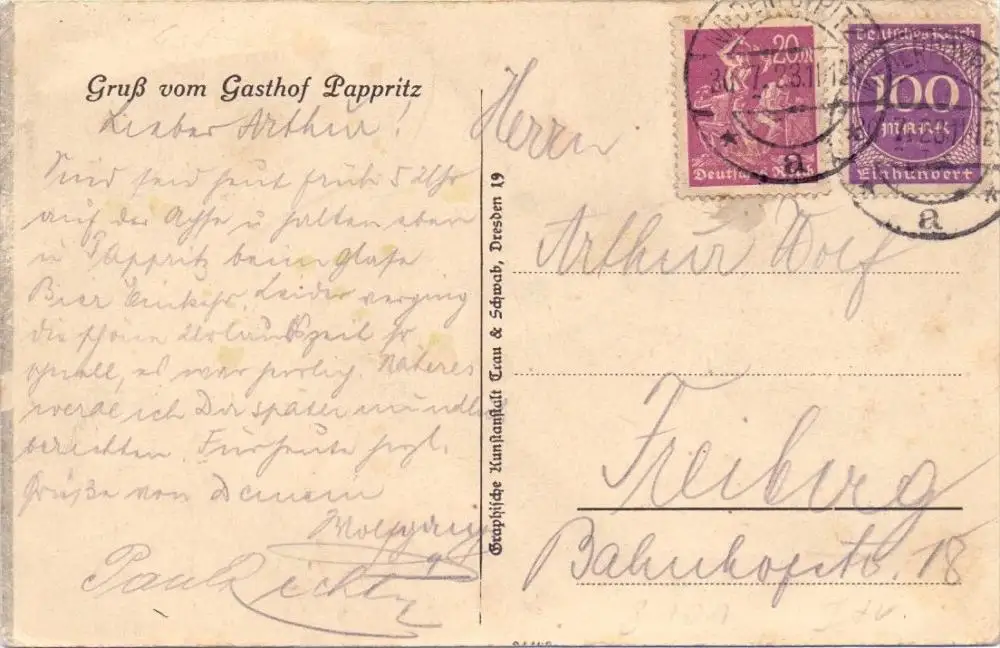 Gruß vom Gasthof Pappritz
Lieber Arthur!
Sind seid heut früh 5 Uhr
auf der Achse u halten eben
in Pappritz beim Glase
Bier Einkehr. Leider verging
die schöne Urlaubszeit so
schnell, es war herrlich. Näheres
werde ich Dir später mündlich
berichten. Für heute herzl.
Grüße von Deinem
Wolfgang
Paul Richter
Graphische Kunstanstalt Trau & Schwab, Dresden 19
20
Deutsches Reich
Deutsches Reich
100
MARK
Einhundert
a
a
Herrn
Arthur Wolf
Freiberg
Bahnhofstr. 18